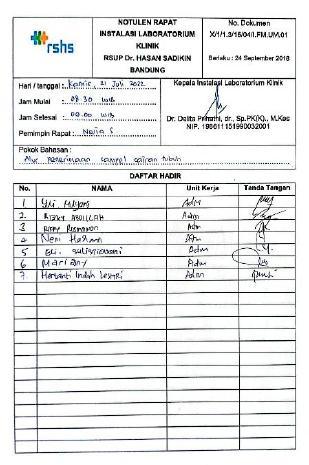 rshs
NOTULEN RAPAT
INSTALASI LABORATORIUM
KLINIK
RSUP Dr. HASAN SADIKIN
BANDUNG
No. Dokumen
X/1/1.3/16/04/I.FM.UM.01
Berlaku : 24 September 2018
Hari / tanggal : Kamis, 21 Juli 2022
Jam Mulai : 08.30 WIB
Jam Selesai : 09.00 WIB
Pemimpin Rapat : Najia S
Kepala Instalasi Laboratorium Klinik
Dr. Delita Prihatni, dr., Sp.PK(K)., M.Kes
NIP. 196611151990032001
Pokok Bahasan :
Alur penerimaan sampel cairan tubuh
DAFTAR HADIR
No. NAMA Unit Kerja Tanda Tangan
1 Adm
2. RIZKY ABDILLAH Adm
3 Adm
4 Neni Adm
5 Adm
6 Mariany Adm
7 Hersanti Indah Lestari Adm